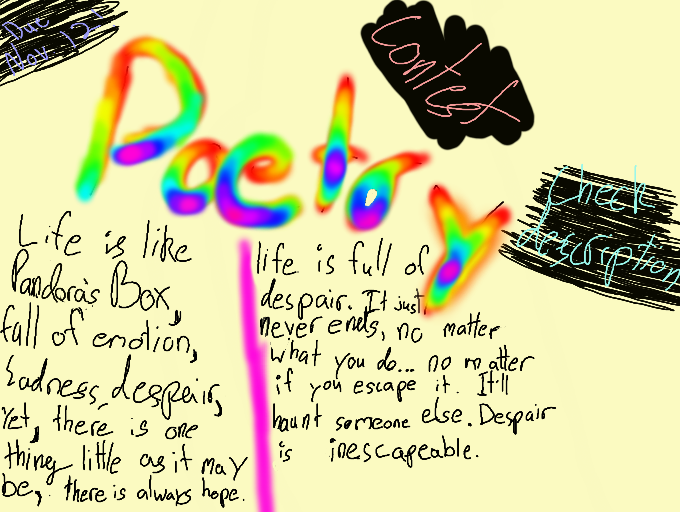 Due
Nov. 12th
Contest
Poetry
Check
description
Life is like
Pandora's Box,
full of emotion,
Sadness, despair,
Yet, there is one
thing little as it may
be, there is always hope.
life is full of
despair. It just
never ends, no matter
what you do... no matter
if you escape it. It'll
haunt someone else. Despair
is inescapeable.